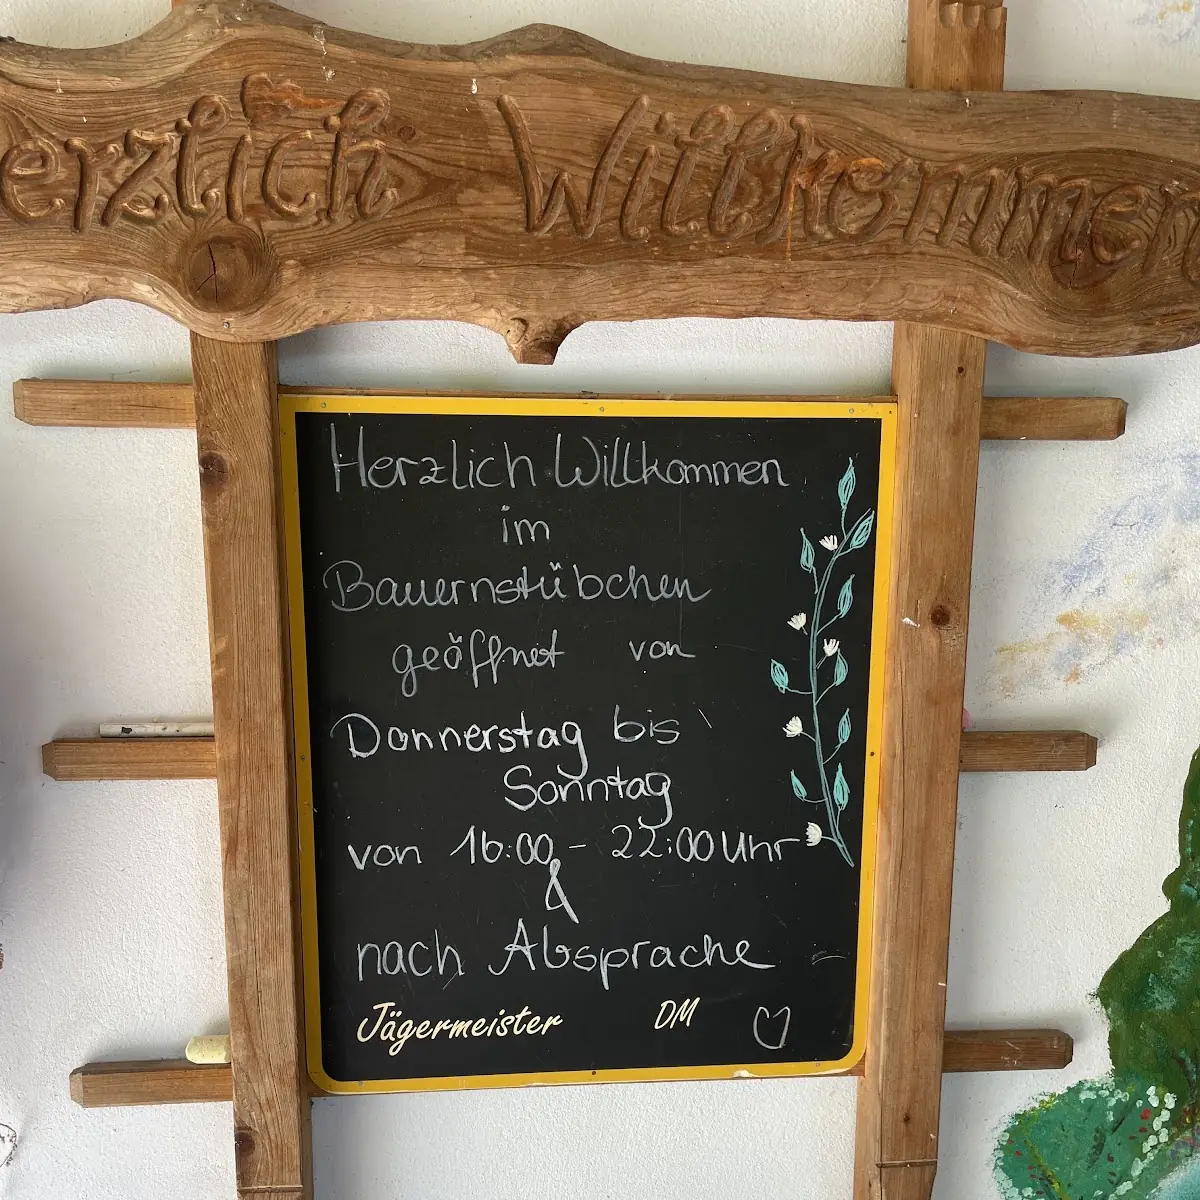 erzlich Willkommen
Herzlich Willkommen
im
Bauernstübchen
geöffnet von
Donnerstag bis
Sonntag
von 16:00 - 22:00 Uhr
&
nach Absprache
Jägermeister DM